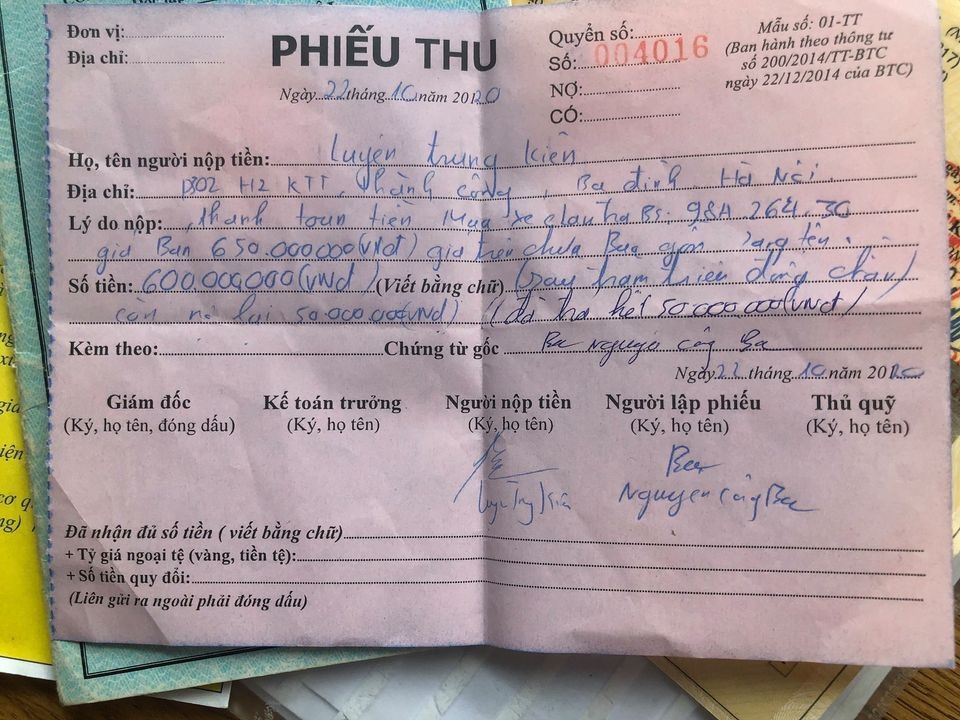 Đơn vị:
Địa chỉ:
PHIẾU THU
Ngày 22 tháng 10 năm 2020
Quyển số:
Số: 004016
NỢ:
CÓ:
Mẫu số: 01-TT
(Ban hành theo thông tư
số 200/2014/TT-BTC
ngày 22/12/2014 của BTC)
Họ, tên người nộp tiền: Luyện trung Kiên
Địa chỉ: P302 H2 KTT. Thành Công, Ba đình. Hà Nội.
Lý do nộp: Thanh toán tiền Mua xe BS: 98A 264.30
giá Bán 650.000.000(VNđ) giá trên chưa Bao gồm sang tên.
Số tiền: 600.000.000(VNđ) (Viết bằng chữ)
còn nợ lại 50.000.000(VNđ) (đã trả hết 50.000.000(VNđ)
Kèm theo: Chứng từ gốc Ba Nguyễn Công Ba
Ngày 22 tháng 10 năm 2020
Giám đốc
(Ký, họ tên, đóng dấu)
Kế toán trưởng
(Ký, họ tên)
Người nộp tiền
(Ký, họ tên)
Người lập phiếu
(Ký, họ tên)
Thủ quỹ
(Ký, họ tên)
Ba
Nguyễn Công Ba
Đã nhận đủ số tiền ( viết bằng chữ)
+ Tỷ giá ngoại tệ (vàng, tiền tệ):
+ Số tiền quy đổi:
(Liên gửi ra ngoài phải đóng dấu)